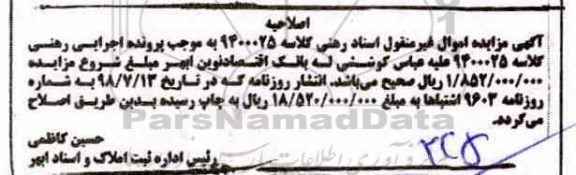 اصلاحیه
آگهی مزایده اموال غیرمنقول اسناد رهنی کلاسه ۹۴۰۰۰۲۵ به موجب پرونده اجرایی رهنی
کلاسه ۹۴۰۰۰۲۵ علیه عباس کوششی له بانک اقتصادنوین ابهر مبلغ شروع مزایده
۱/۸۵۲/۰۰۰/۰۰۰ ریال صحیح می‌باشد. انتشار روزنامه که در تاریخ ۹۸/۷/۱۳ به شماره
روزنامه ۹۶۰۳ اشتباها به مبلغ ۱۸/۵۲۰/۰۰۰/۰۰۰ ریال به چاپ رسیده بدین طریق اصلاح
می‌گردد.
ParsNamadData
حسین کاظمی
رئیس اداره ثبت املاک و اسناد ابهر